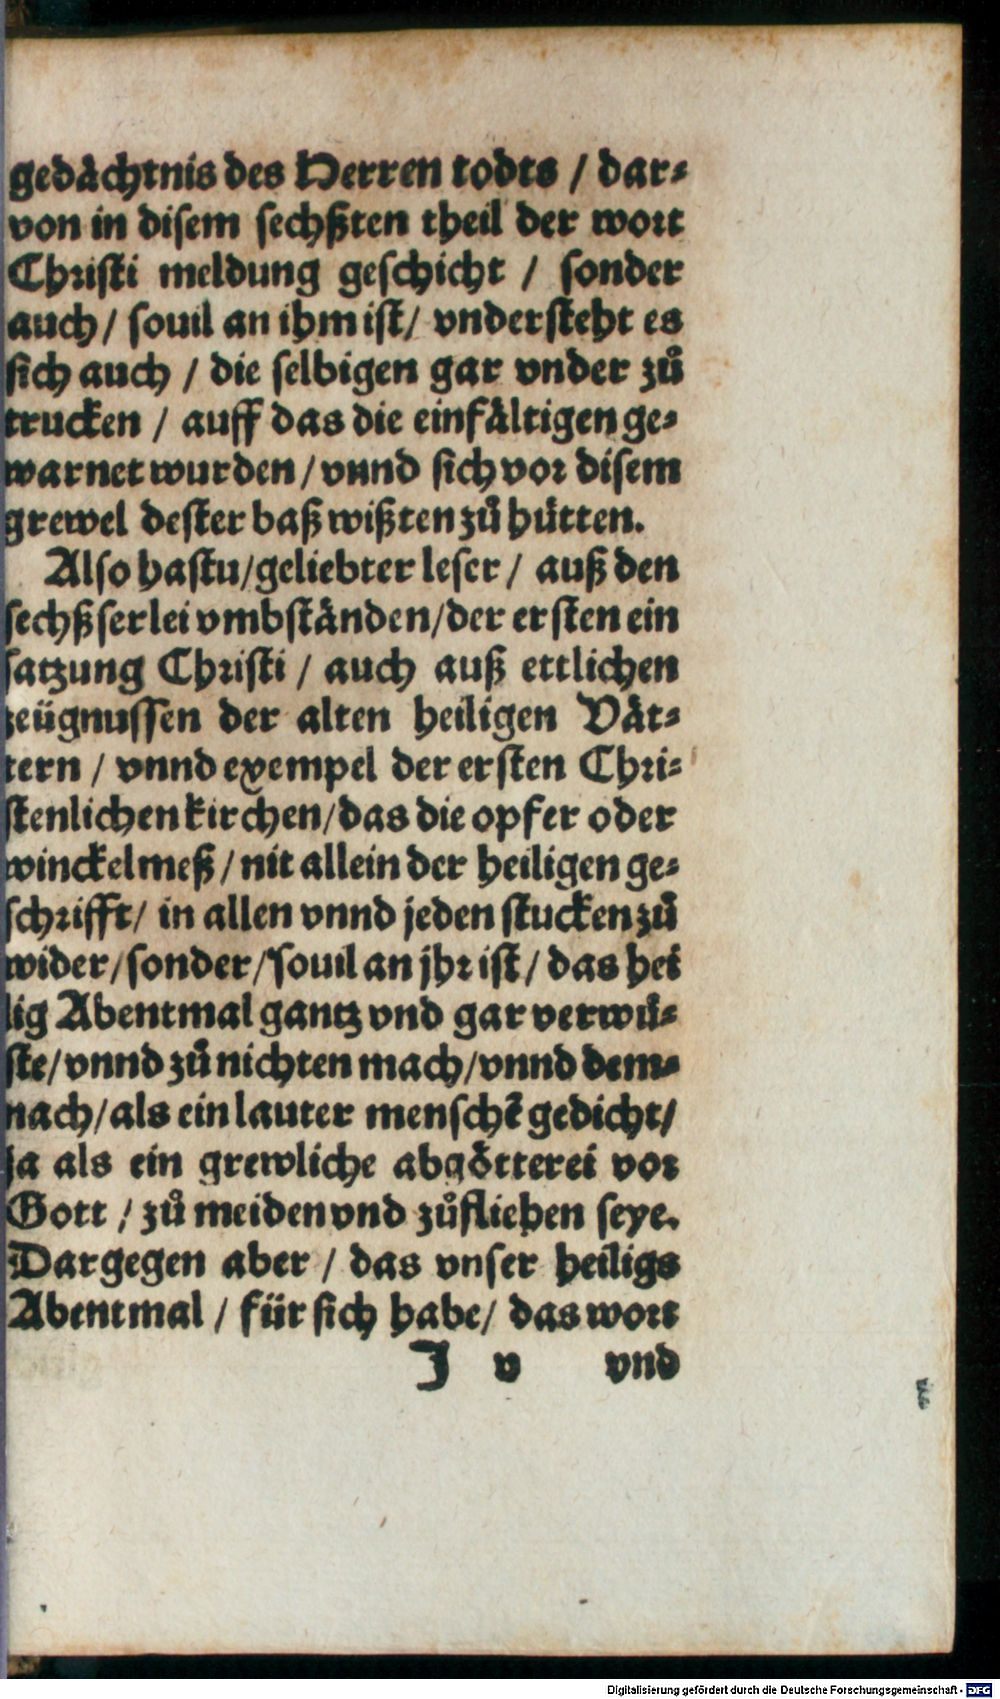 gedåchtnis des Herren todts / dar⸗
von in disem sechßten theil der wort
Christi meldung geschicht / sonder
auch / souil an ihm ist / vndersteht es
sich auch / die selbigen gar vnder zů
trucken / auff das die einfåltigen ge⸗
warnet wurden / vnnd sich vor disem
grewel dester baß wißten zů hütten.
Also hastu / geliebter leser / auß den
sechßserlei vmbstånden / der ersten ein
satzung Christi / auch auß ettlichen
zeügnussen der alten heiligen Våt⸗
tern / vnnd exempel der ersten Chri⸗
stenlichen kirchen / das die opfer oder
winckelmeß / nit allein der heiligen ge⸗
schrifft / in allen vnnd jeden stucken zů
wider / sonder / souil an jhr ist / das hei
lig Abentmal gantz vnd gar verwü⸗
ste / vnnd zů nichten mach / vnnd dem⸗
nach / als ein lauter menschẽ gedicht /
ja als ein grewliche abgötterei vor
Gott / zů meiden vnd zůfliehen seye.
Dargegen aber / das vnser heiligs
Abentmal / für sich habe / das wort
J v vnd
Digitalisierung gefördert durch die Deutsche Forschungsgemeinschaft - DFG